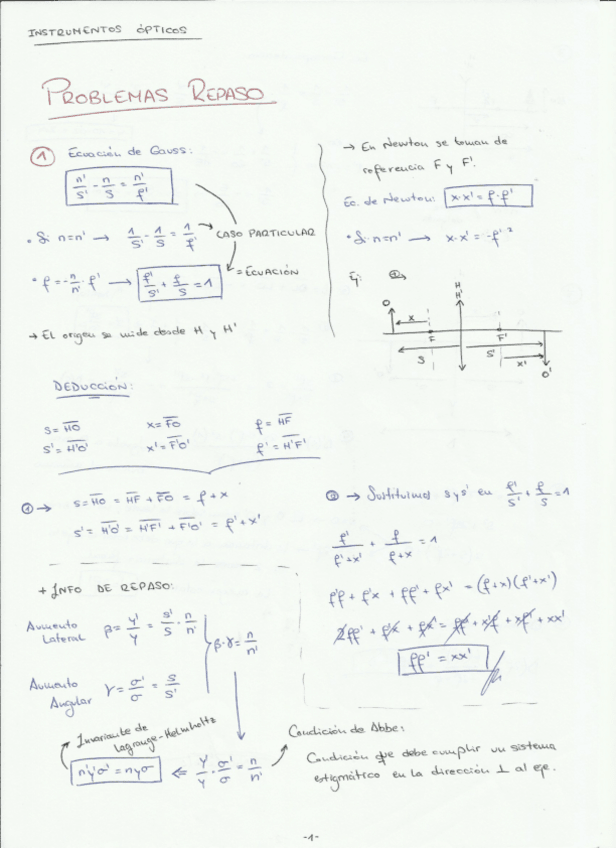 INSTRUMENTOS ÓPTICOS
PROBLEMAS REPASO
① Ecuación de Gauss:
n'/s' - n/s = n'/f'
• Si n=n' → 1/s' - 1/s = 1/f' → CASO PARTICULAR
• f = -n/n' · f' → f'/s' + f/s = 1 = ECUACIÓN
→ El origen se mide desde H y H'
→ En Newton se toman de
referencia F y F'.
Ec. de Newton: x·x' = f·f'
• Si n=n' → x·x' = -f'²
Ej:
O
H
H'
x
F
F'
S
S'
x'
O'
DEDUCCIÓN:
s = HO x = FO f = HF
s' = H'O' x' = F'O' f' = H'F'
① → s = HO = HF + FO = f + x
s' = H'O' = H'F' + F'O' = f' + x'
② → Sustituimos s y s' en f'/s' + f/s = 1
f'/f'+x' + f/f+x = 1
f'f + f'x + ff' + fx' = (f+x)(f'+x')
2ff' + f'x + fx' = ff' + x'f + xf' + xx'
ff' = xx'
+ INFO DE REPASO:
Aumento
Lateral β = y'/y = s'/s · n/n'
β·γ = n/n'
Aumento
Angular γ = σ'/σ = s/s'
Invariante de
Lagrange-Helmholtz
n'y'σ' = nyσ ⇐ y'/y · σ'/σ = n/n'
Condición de Abbe:
Condición que debe cumplir un sistema
estigmático en la dirección ⊥ al eje.
-1-